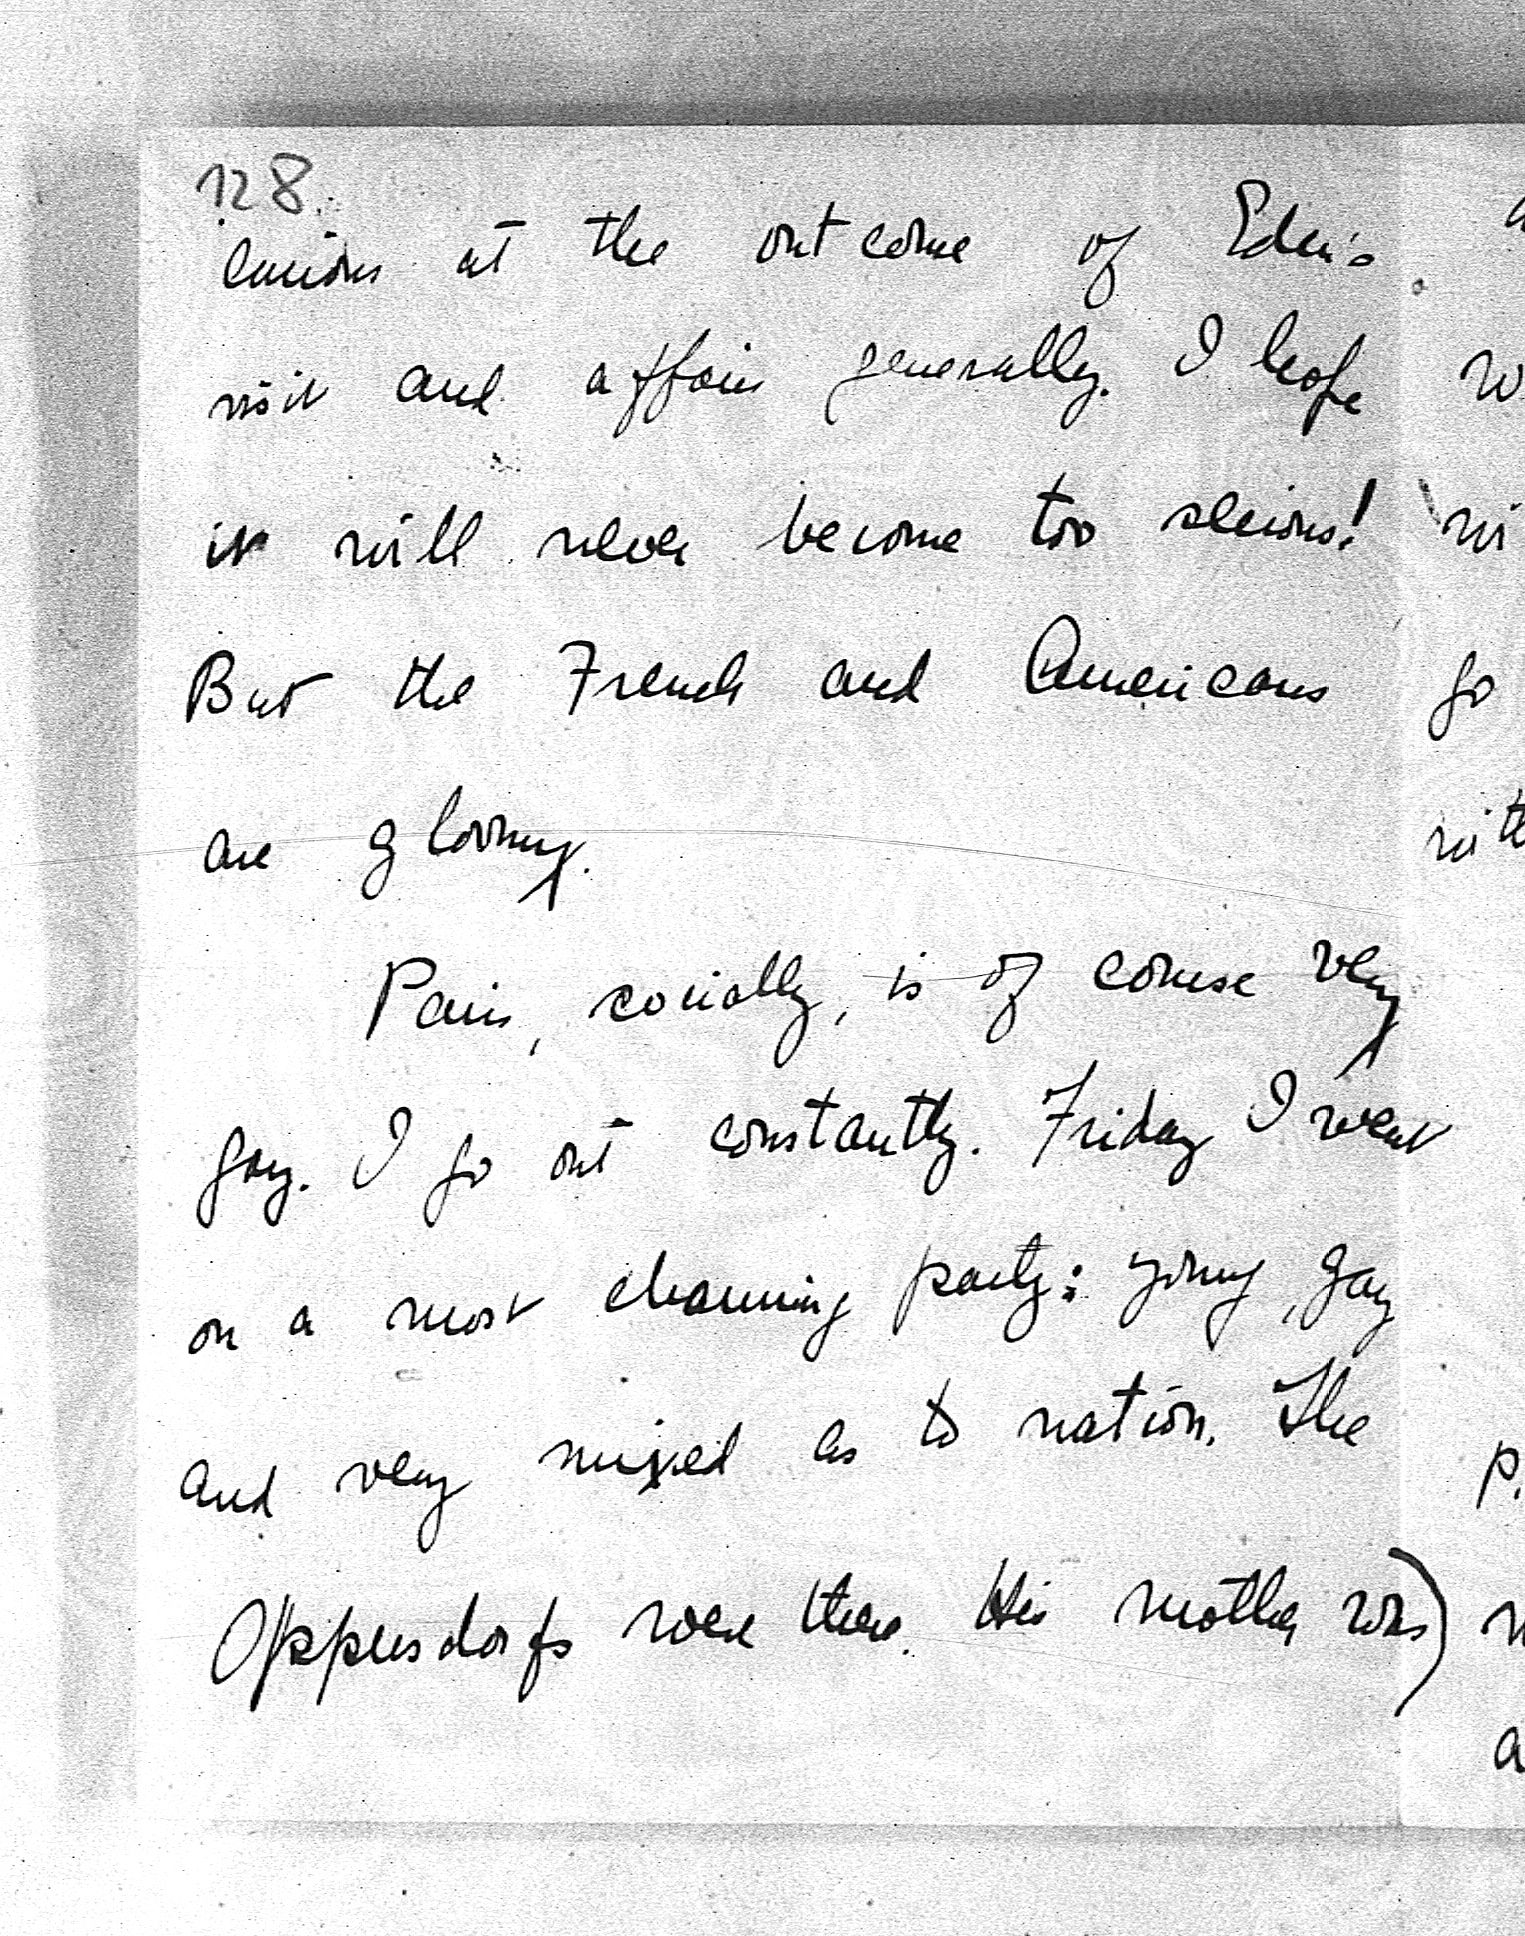 128.
curious at the outcome of Eden's
visit and affairs generally. I hope
it will never become too serious!
But the French and Americans
are gloomy.
Paris, socially, is of course very
gay. I go out constantly. Friday I went
on a most charming party: young, gay
and very mixed as to nation. The
Oppersdorfs were there. His mother was)